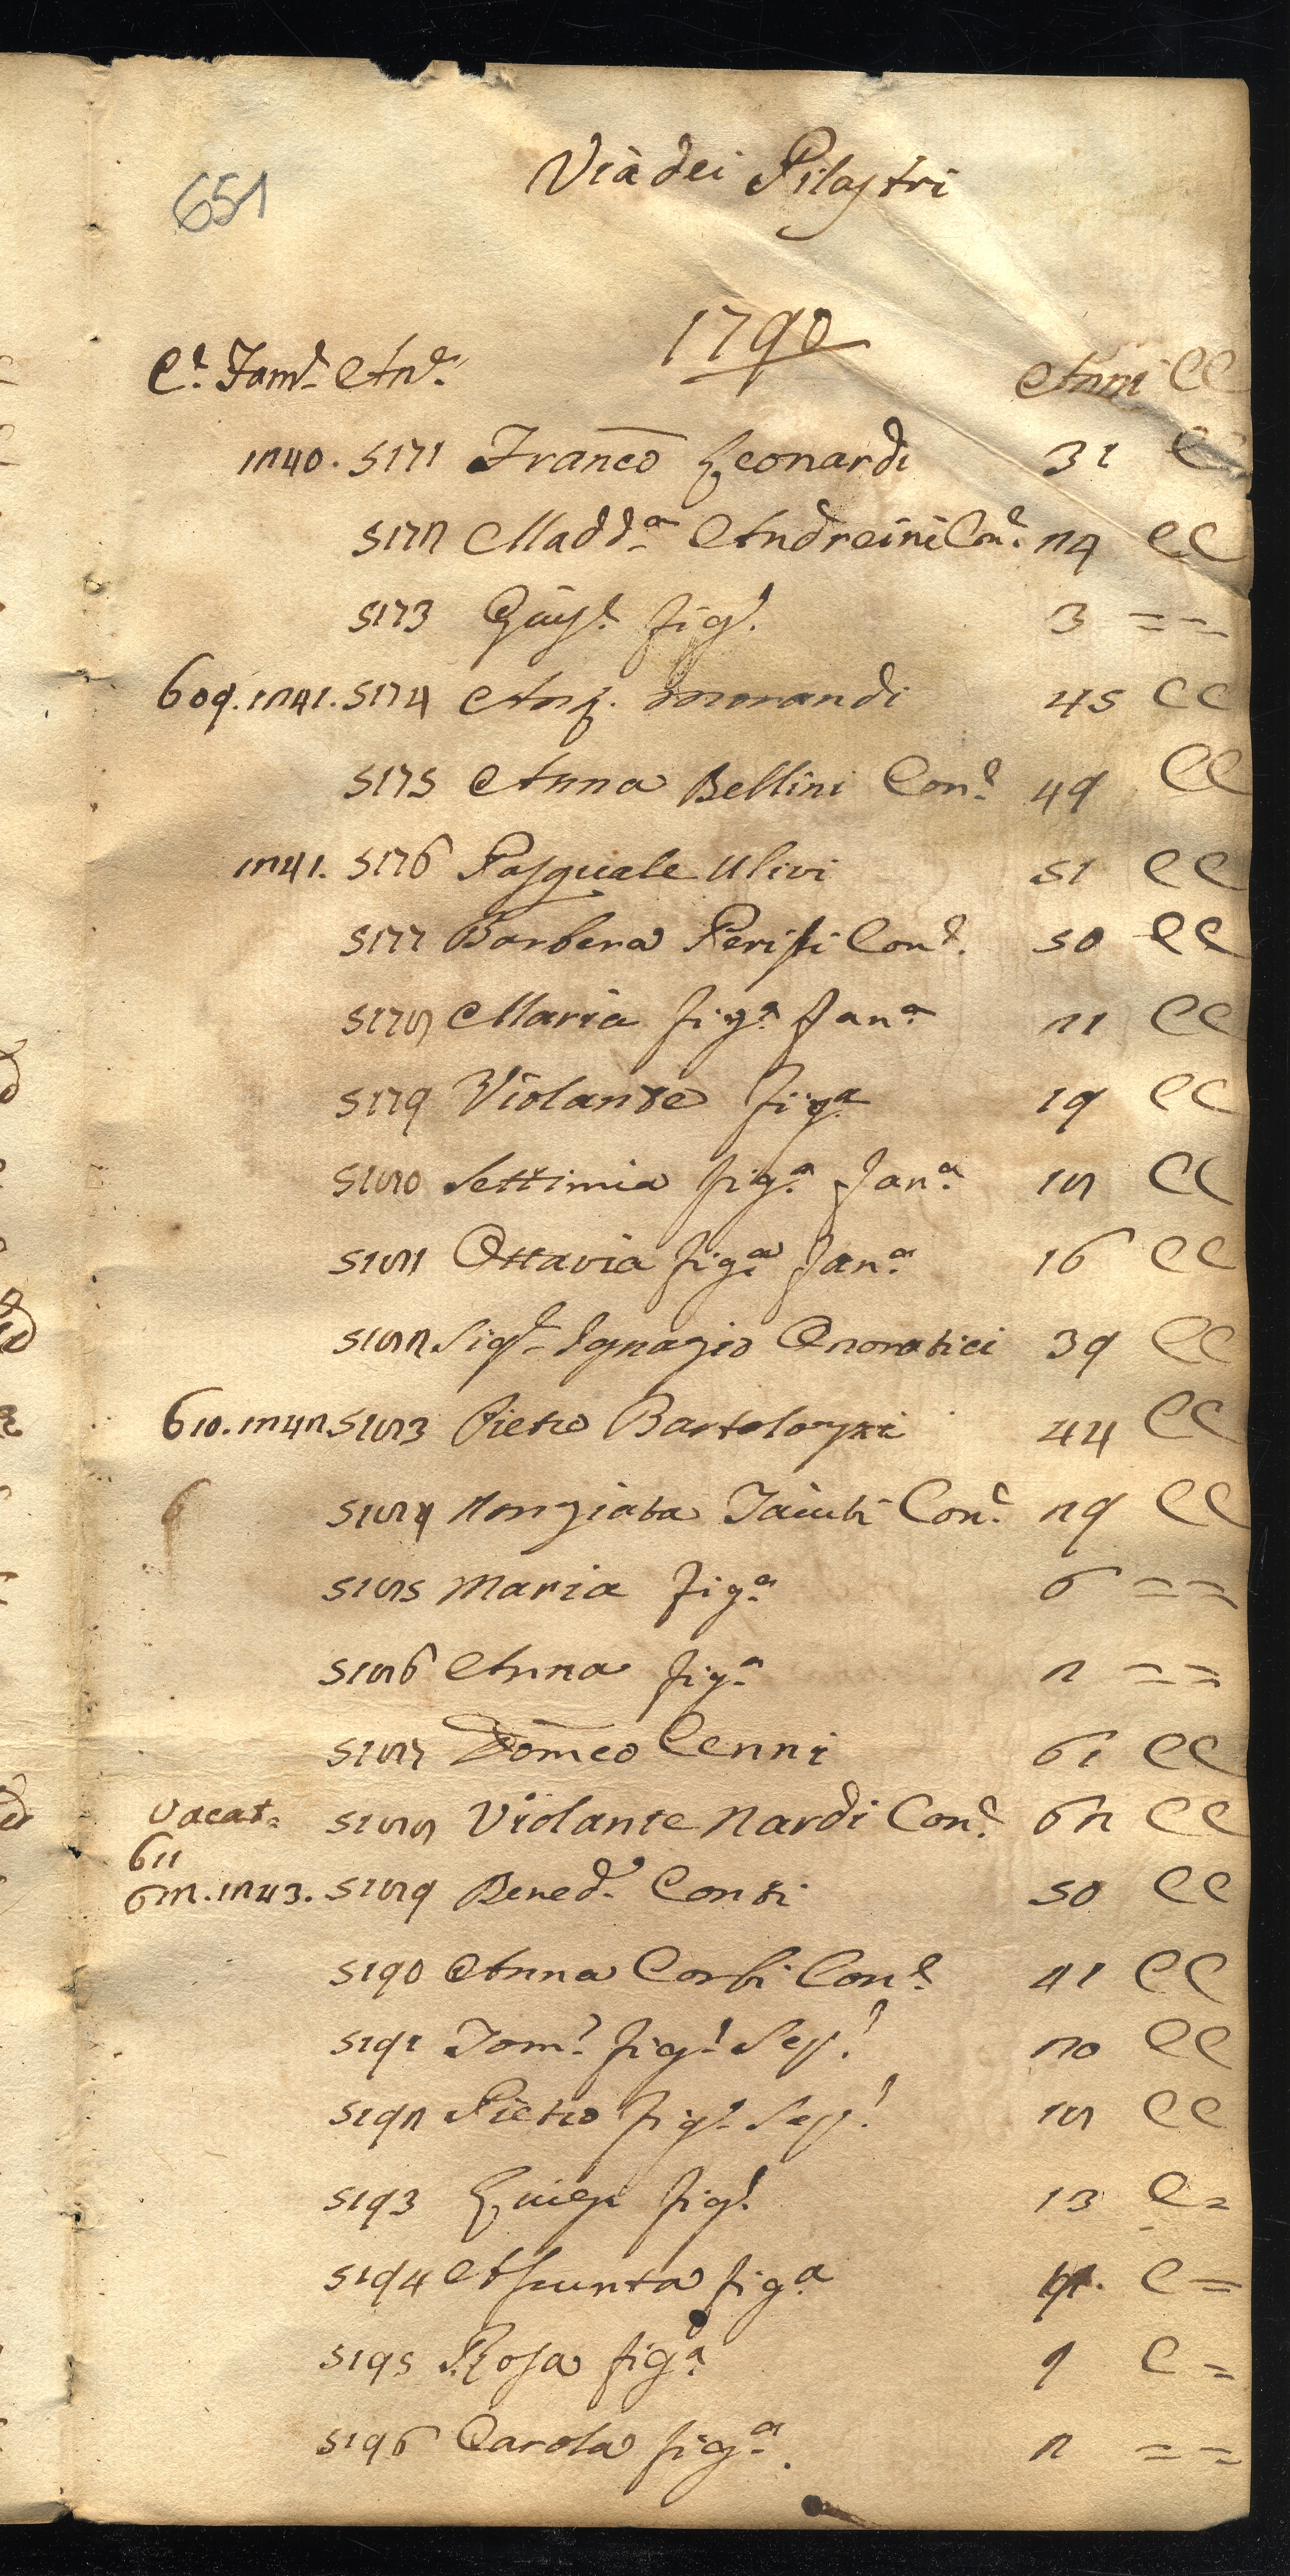 651
Via dei Pilastri
1790
C.e Fam.e An.e Anni CC
1240. 5171 Franco Leonardi 31 C
5172 Madd.a Andreini Con.e 24 CC
5173 Gasp.e fig.o 3 = =
609. 1241. 5174 Ang. Morandi 45 CC
5175 Anna Bellini Con.e 49 CC
1241. 5176 Pasquale Ulivi 51 CC
5177 Barbera Perisi Con.e 50 CC
5178 Maria fig.a fan.a 21 CC
5179 Violante fig.a 19 CC
5180 Settimia fig.a fan.a 18 CC
5181 Ottavia fig.a fan.a 16 CC
5182 Sig.r Ignazio Onoratici 39 CC
610. 1242. 5183 Pietro Bartolozzi 44 CC
5184 Nonziata Con.e 29 CC
5185 Maria fig.a 6 = =
5186 Anna fig.a 2 = =
5187 Domco Cenni 61 CC
Vacat. 5188 Violante Nardi Con.e 62 CC
611
612. 1243. 5189 Bened.o Conti 50 CC
5190 Anna Corbi Con.e 41 CC
5191 Tom.o fig.o Sep.o 20 CC
5192 Pietro fig.o Sep.o 18 CC
5193 Luigi fig.o 13 C=
5194 Assunta fig.a C=
5195 Rosa fig.a 9 C=
5196 Carola fig.a 2 = =